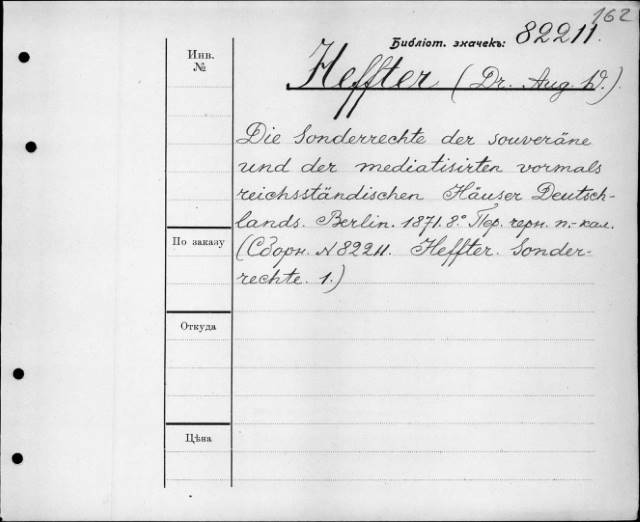 162
Библіот. значекъ: 82211.
Инв.
№
Heffter (Dr. Aug. W.).
Die Sonderrechte der souveräne
und der mediatisirten vormals
reichsständischen Häuser Deutsch-
lands. Berlin. 1871. 8º. Пер. черн. п.-кал.
По заказу
(Сборн. № 82211. Heffter. Sonder-
rechte. 1.)
Откуда
Цѣна